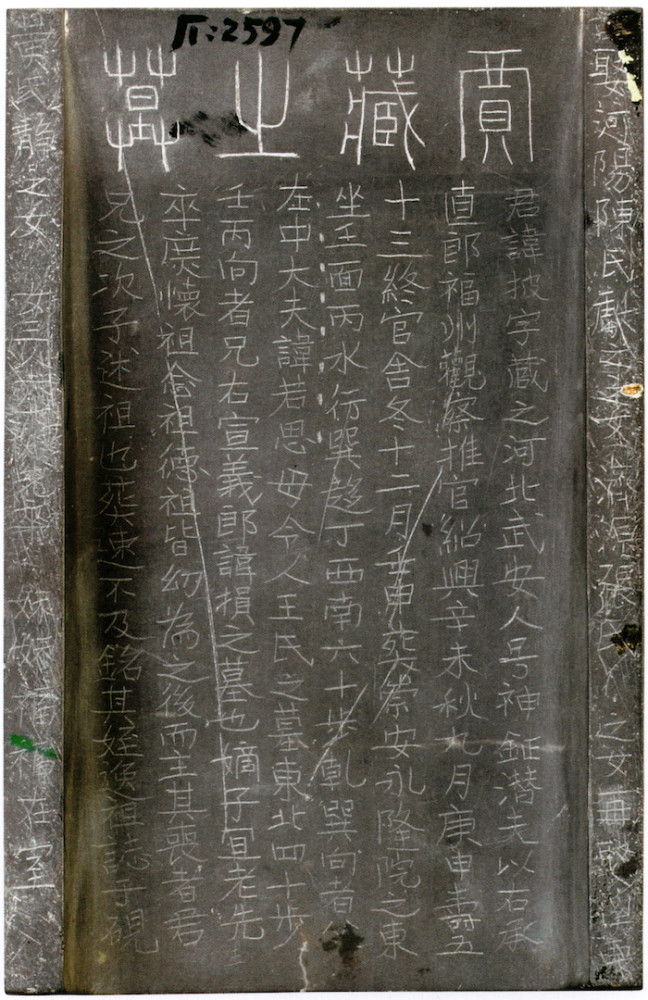 Π:2597
賈藏之墓
君諱披字藏之河北武安人号神鉦潛夫以右承
直郎福州觀察推官紹興辛未秋九月庚申壽五
十三終官舍冬十二月壬申葬崇安永隆院之東
坐壬面丙水行巽趍丁西南六十步乾巽向者
左中大夫諱若思母令人王氏之墓東北四十步
壬丙向者兄右宣義郎諱損之墓也嫡子宜老先
卒庶懷祖念祖德祖皆幼為之後而主其喪者君
兄之次子述祖也葬速不及銘其姪逸祖誌于硯
娶河陽陳氏獻女濟源張氏之女
黃氏靜之女 女三在室